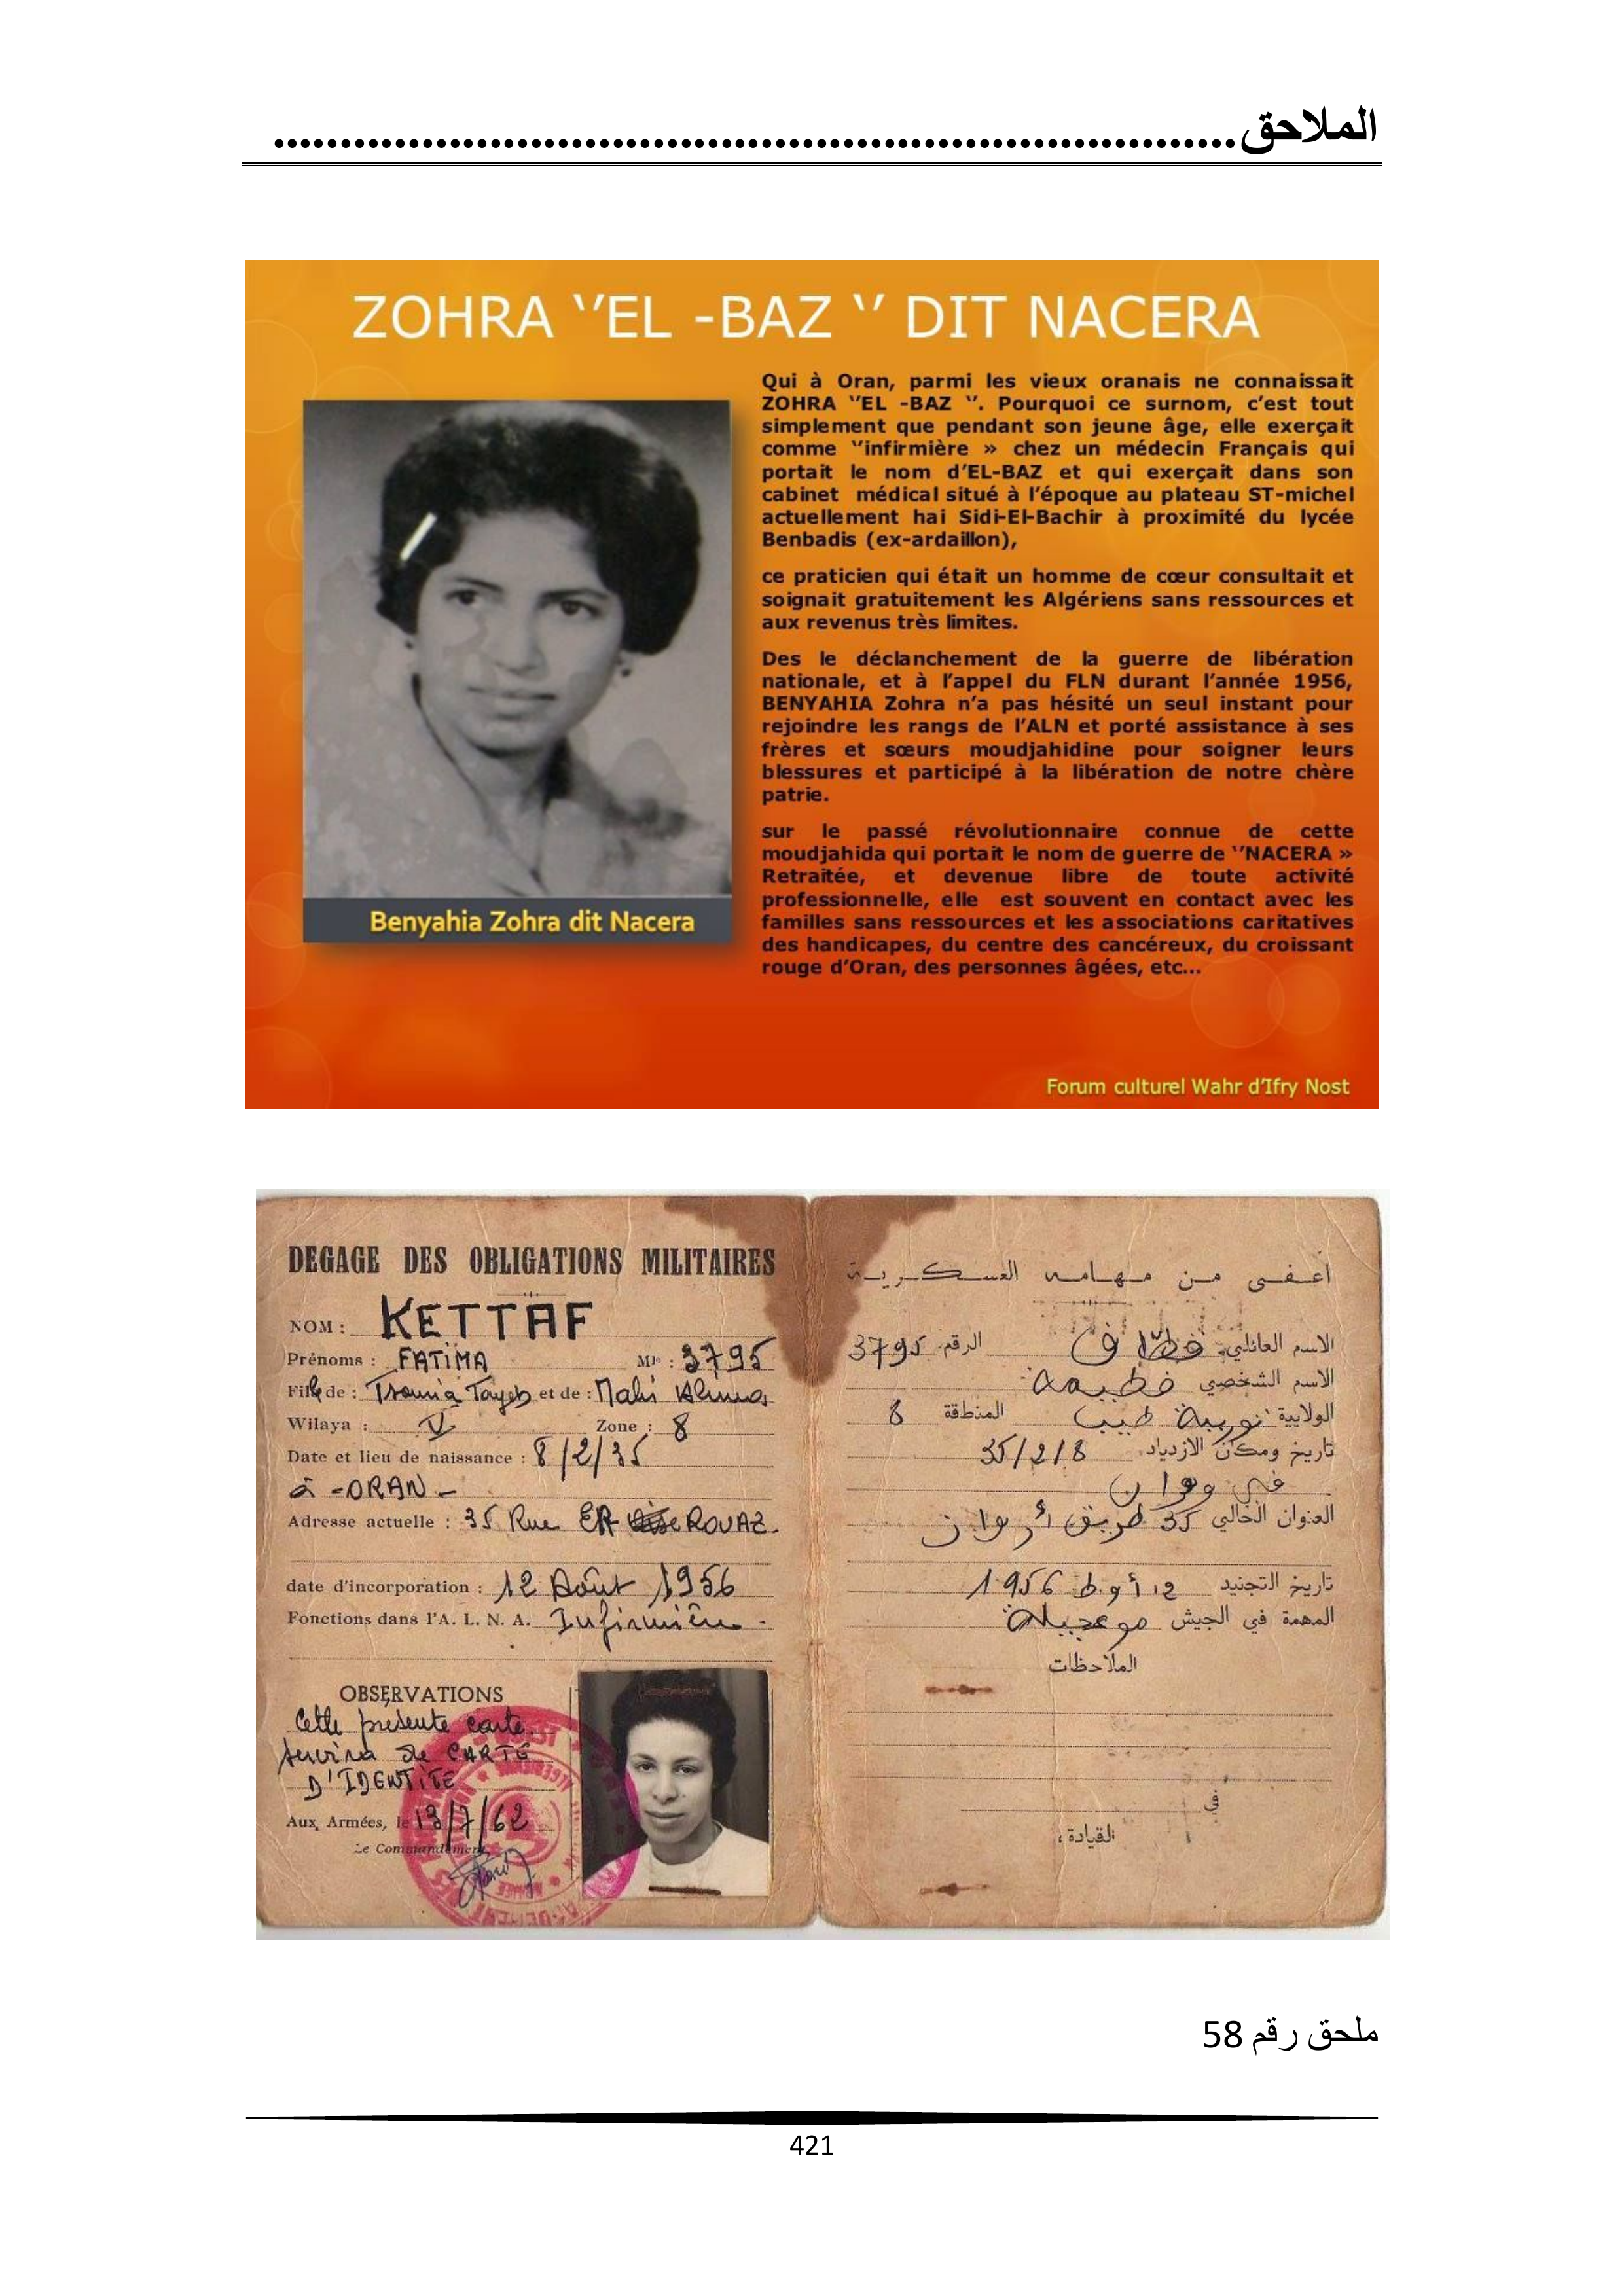 الملاحق........................................................................
ZOHRA ‘’EL -BAZ ‘’ DIT NACERA
Qui à Oran, parmi les vieux oranais ne connaissait
ZOHRA ‘’EL -BAZ ‘’. Pourquoi ce surnom, c’est tout
simplement que pendant son jeune âge, elle exerçait
comme ‘’infirmière » chez un médecin Français qui
portait le nom d’EL-BAZ et qui exerçait dans son
cabinet médical situé à l’époque au plateau ST-michel
actuellement hai Sidi-El-Bachir à proximité du lycée
Benbadis (ex-ardaillon),
ce praticien qui était un homme de cœur consultait et
soignait gratuitement les Algériens sans ressources et
aux revenus très limites.
Des le déclanchement de la guerre de libération
nationale, et à l’appel du FLN durant l’année 1956,
BENYAHIA Zohra n’a pas hésité un seul instant pour
rejoindre les rangs de l’ALN et porté assistance à ses
frères et sœurs moudjahidine pour soigner leurs
blessures et participé à la libération de notre chère
patrie.
sur le passé révolutionnaire connue de cette
moudjahida qui portait le nom de guerre de ‘’NACERA »
Retraitée, et devenue libre de toute activité
professionnelle, elle est souvent en contact avec les
familles sans ressources et les associations caritatives
des handicapes, du centre des cancéreux, du croissant
rouge d’Oran, des personnes âgées, etc...
Benyahia Zohra dit Nacera
Forum culturel Wahr d’Ifry Nost
DEGAGE DES OBLIGATIONS MILITAIRES
NOM : KETTAF
Prénoms : FATIMA Mle : 3795
Fille de : Tayeb et de : Mahi
Wilaya : V Zone : 8
Date et lieu de naissance : 8/2/35
à - ORAN -
Adresse actuelle : 35 Rue ER ROUAZ.
date d'incorporation : 12 Août 1956
Fonctions dans l'A. L. N. A. Infirmière -
OBSERVATIONS
Cette présente carte
servira de CARTE
D'IDENTITE
Aux Armées, le 13/7/62
Le Commandement
أعفي من مهامه العسكرية
الاسم العائلي: الرقم 3795
الاسم الشخصي
الولاية طيب المنطقة 8
تاريخ ومكان الازدياد 35/2/8
في وهران
العنوان الحالي 35 طريق
تاريخ التجنيد 12 أوط 1956
المهمة في الجيش
الملاحظات
في
القيادة ،
ملحق رقم 58
421